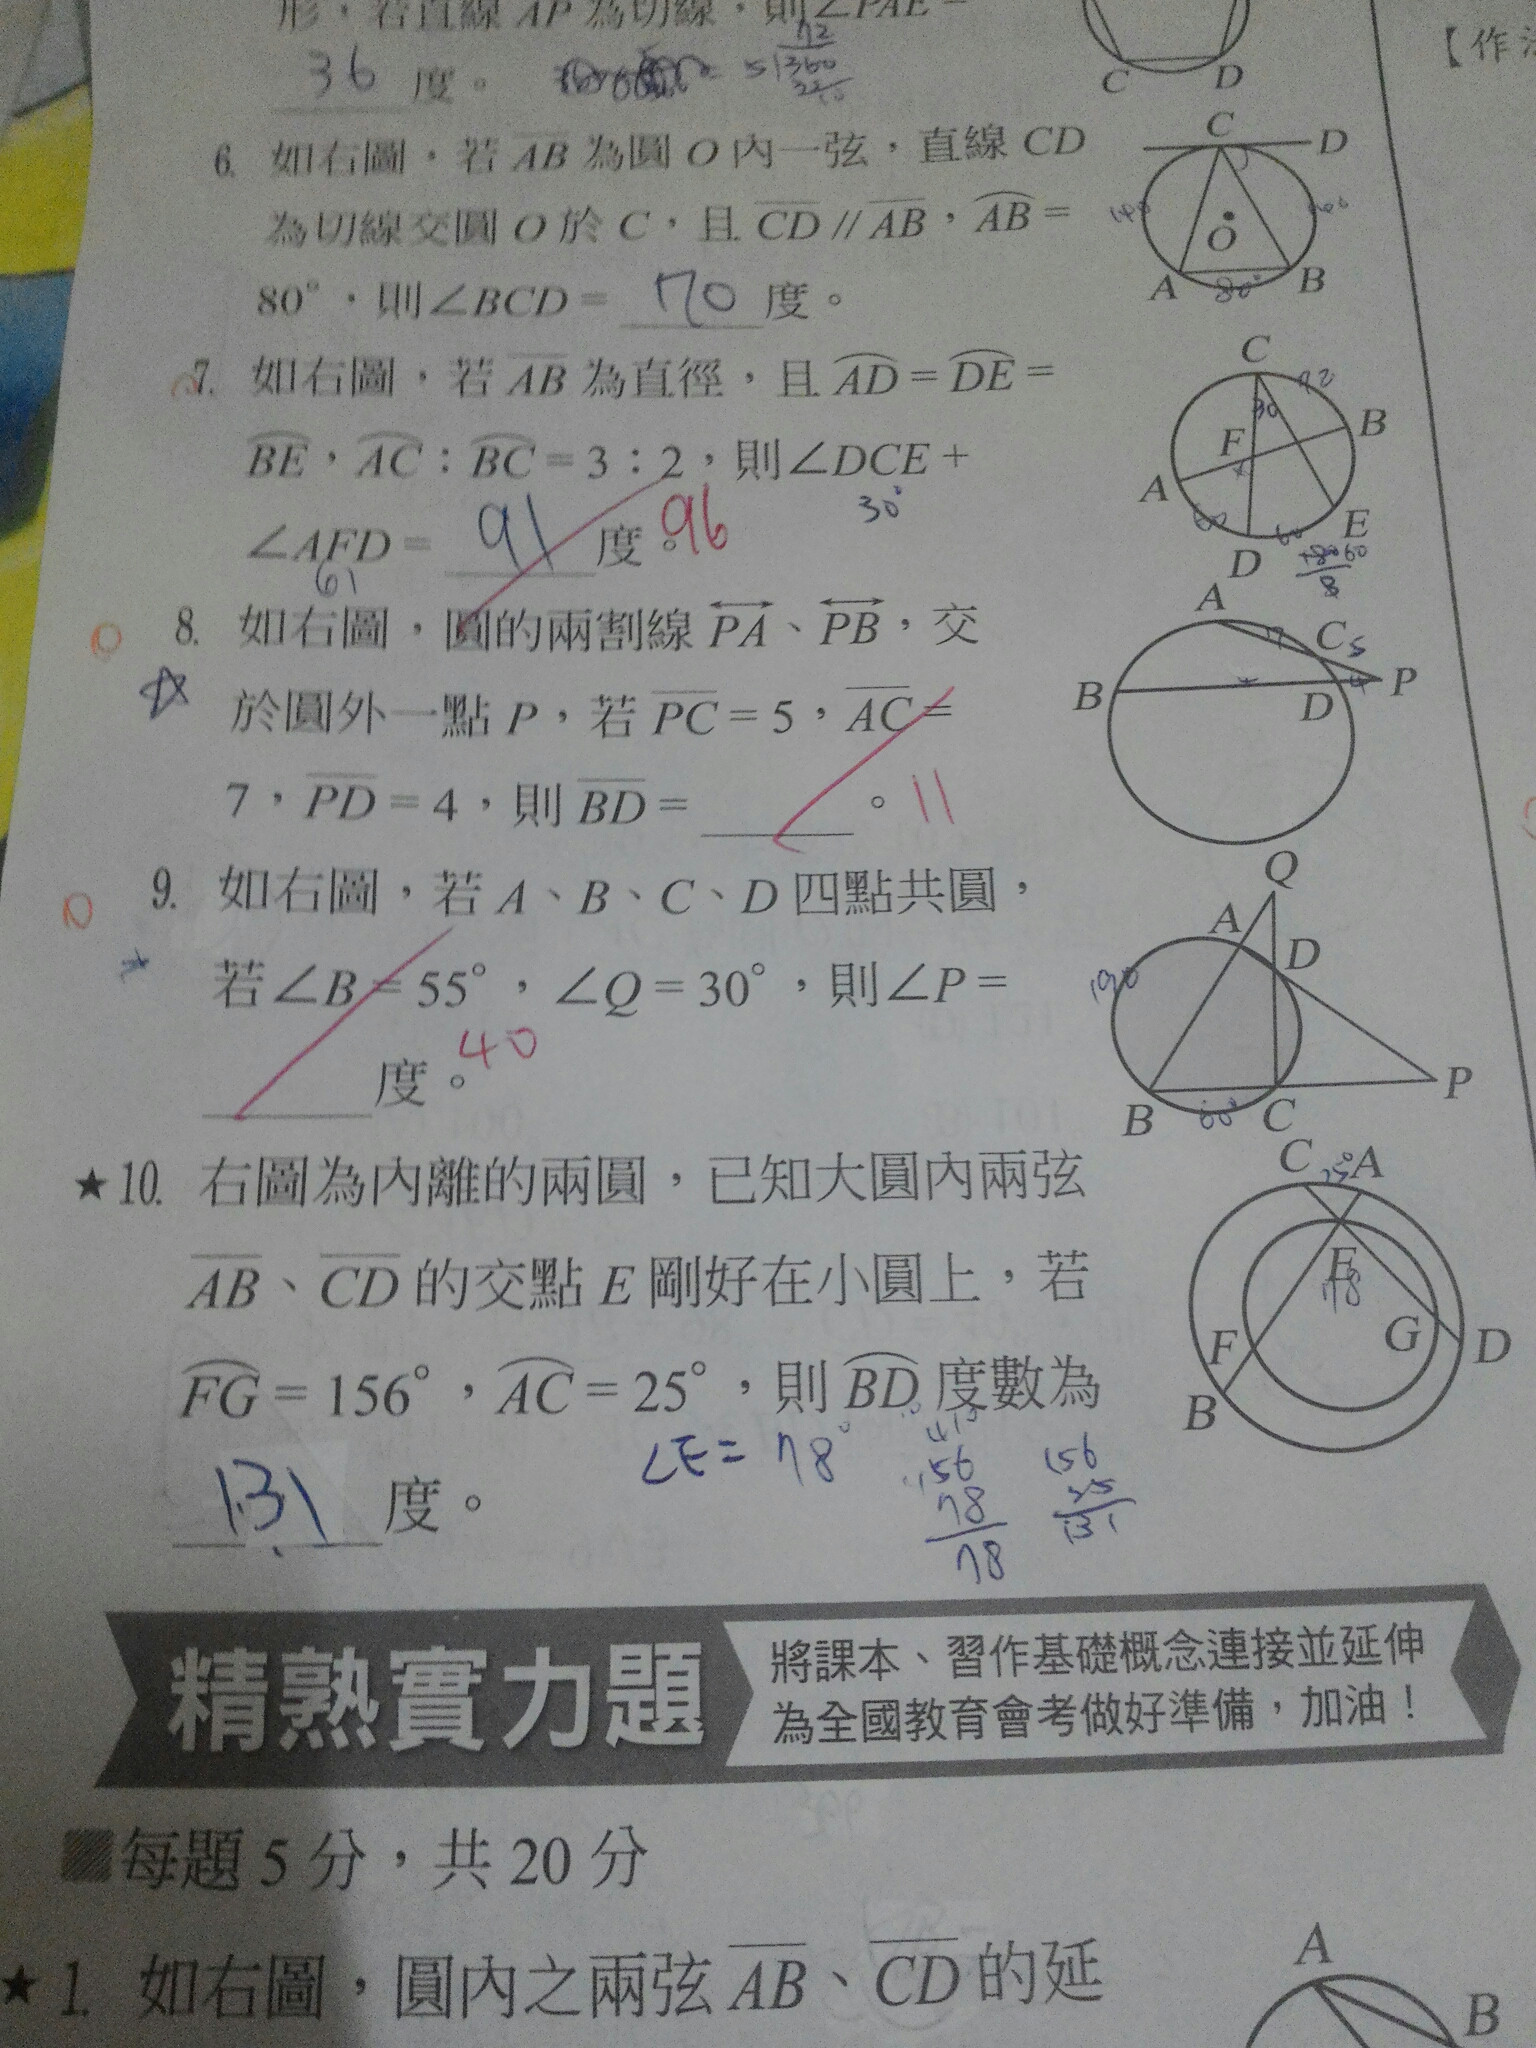 形，若直線 AP 為切線，則∠PAE =
36 度。
72
5 360
C D
【作
6. 如右圖，若 AB 為圓 O 內一弦，直線 CD
為切線交圓 O 於 C，且 CD // AB，AB =
80°，則∠BCD = 70 度。
C D
O
A 80° B
7. 如右圖，若 AB 為直徑，且 AD = DE =
BE，AC：BC = 3：2，則∠DCE +
30°
∠AFD = 91 度。96
61
C 72
30
F B
A
60 60 E
D
8. 如右圖，圓的兩割線 PA、PB，交
於圓外一點 P，若 PC = 5，AC =
7，PD = 4，則 BD = 。11
A
7 C 5
B D 4 P
9. 如右圖，若 A、B、C、D 四點共圓，
若∠B = 55°，∠Q = 30°，則∠P =
度。40
Q
A D
B 60° C P
★10. 右圖為內離的兩圓，已知大圓內兩弦
AB、CD 的交點 E 剛好在小圓上，若
FG = 156°，AC = 25°，則 BD 度數為
131 度。
∠E = 78°
156
78
78
156
25
131
C 25° A
E
78
F G D
B
精熟實力題
將課本、習作基礎概念連接並延伸
為全國教育會考做好準備，加油！
每題 5 分，共 20 分
★ 1. 如右圖，圓內之兩弦 AB、CD 的延
A
B